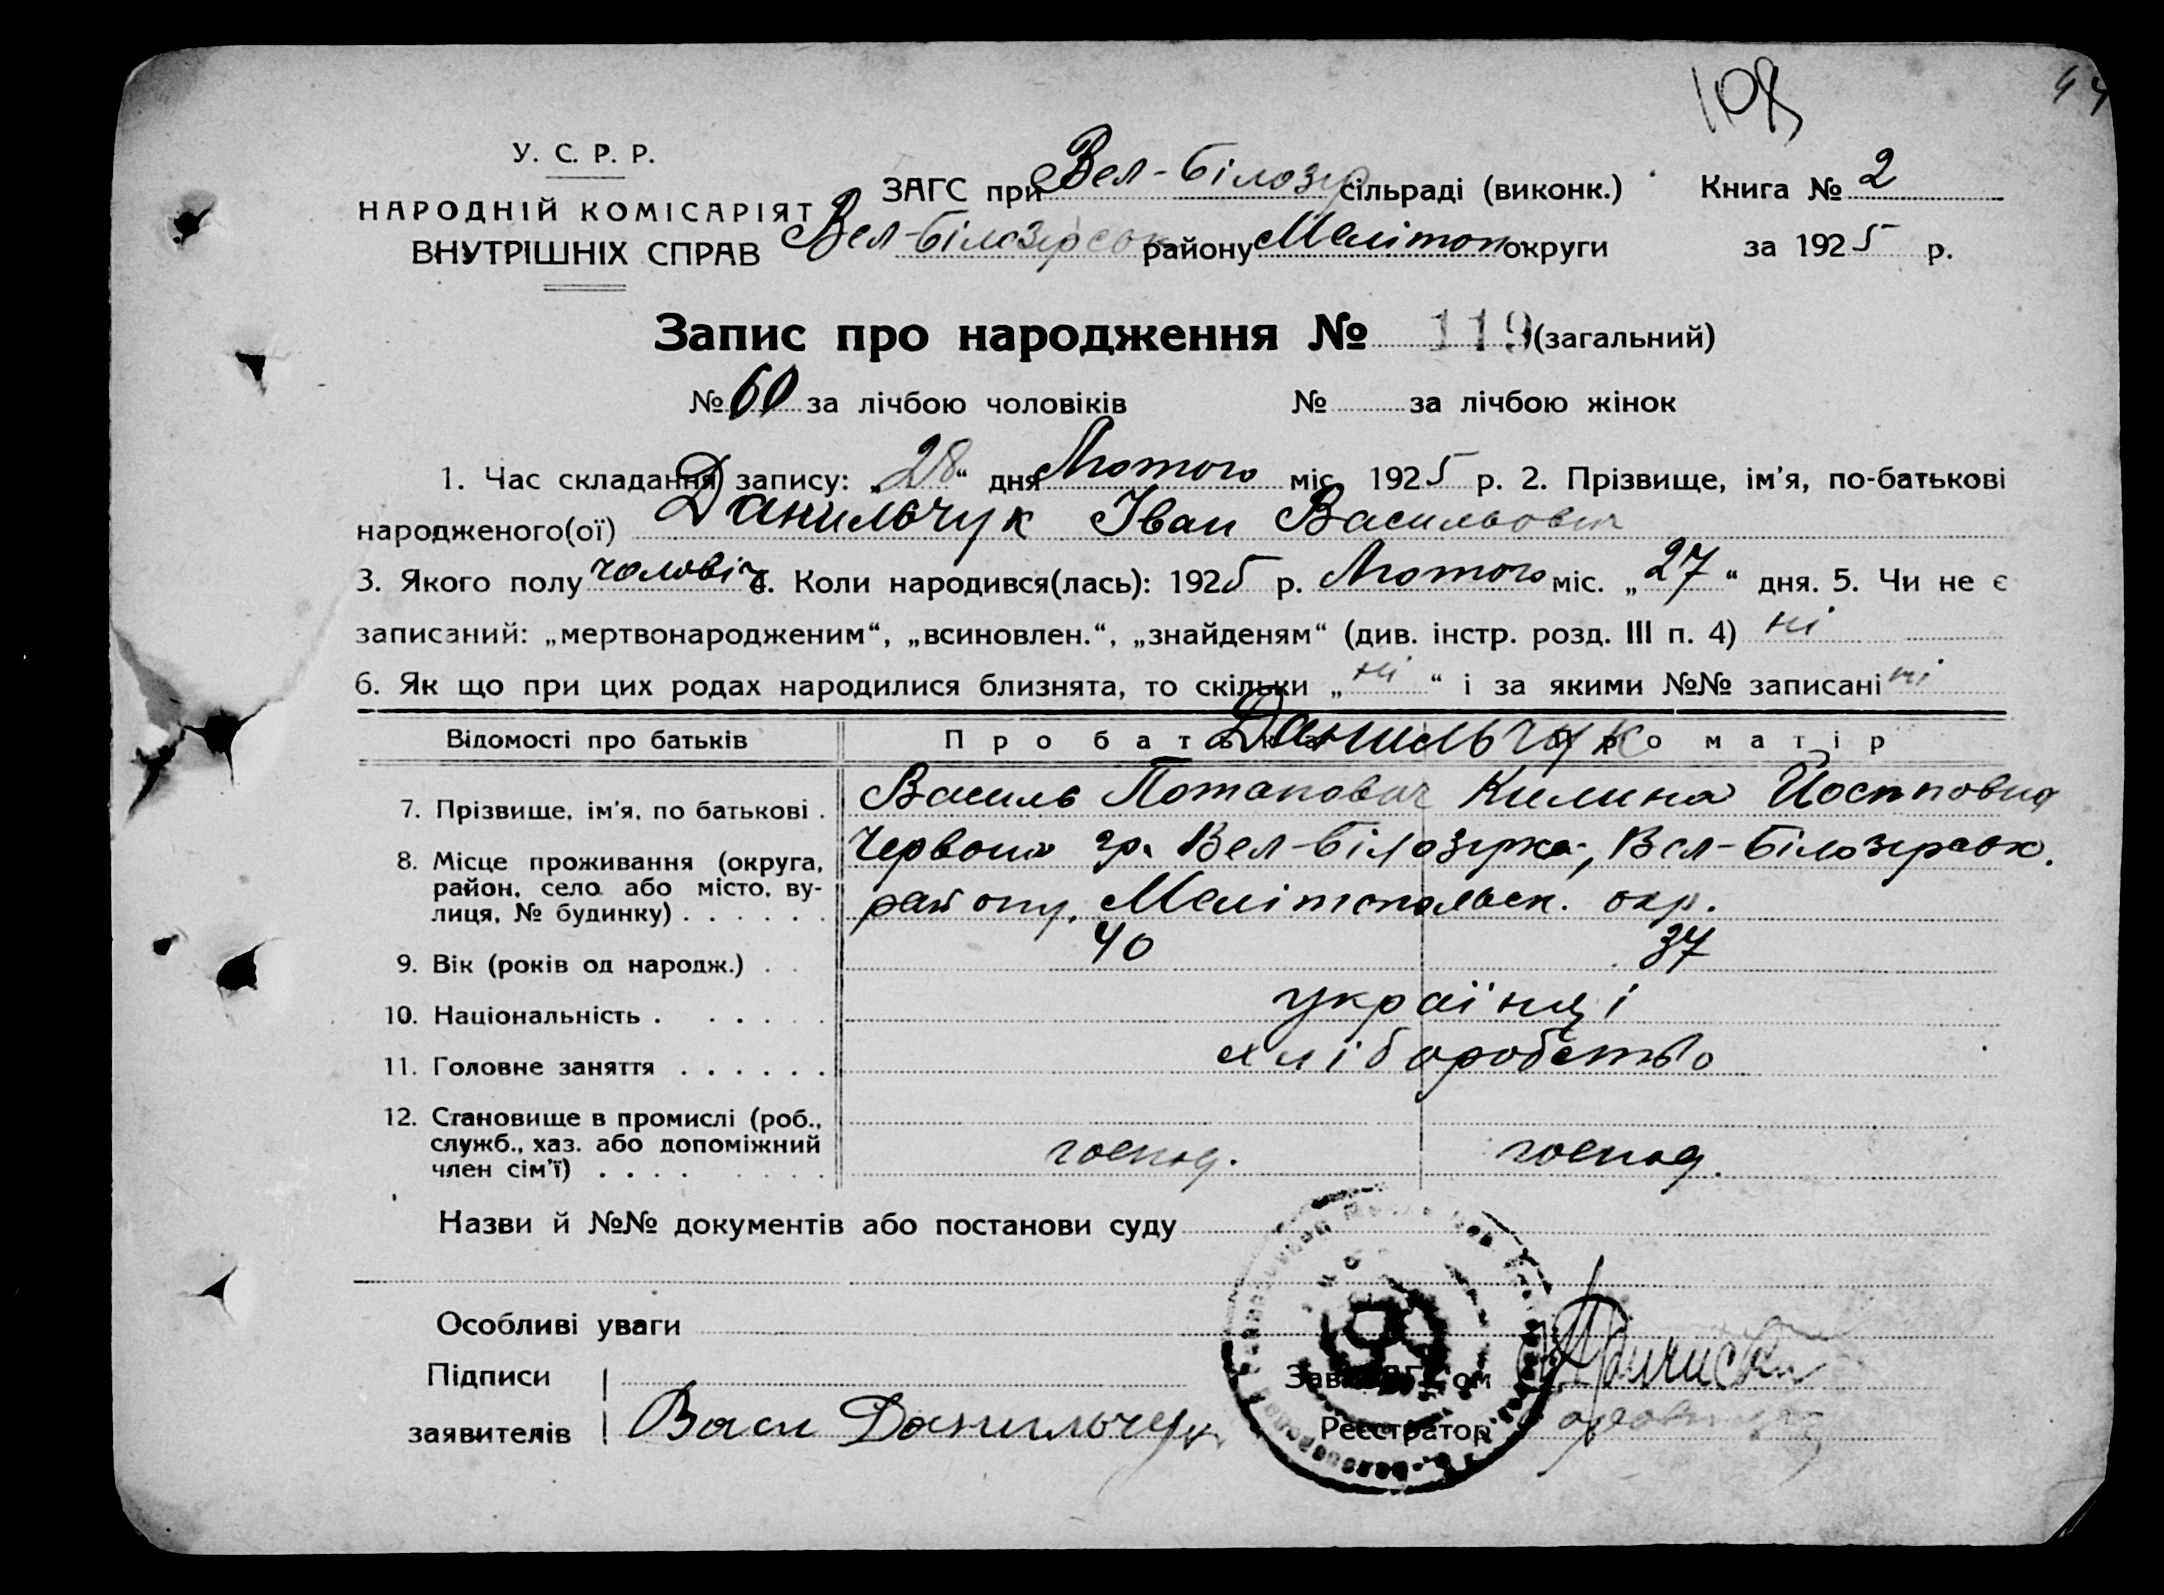 108
44
У. С. Р. Р.
НАРОДНІЙ КОМІСАРІЯТ
ВНУТРІШНІХ СПРАВ
ЗАГС при Вел-Білозір сільраді (виконк.) Книга № 2
Вел-Білозірськ району Мелітоп округи за 1925 р.
Запис про народження № 119 (загальний)
№ 60 за лічбою чоловіків № за лічбою жінок
1. Час складання запису: „28“ дня Лютого міс. 1925 р. 2. Прізвище, ім'я, по-батькові
народженого(ої) Данильчук Іван Васильович
3. Якого полу чоловіч 4. Коли народився(лась): 1925 р. Лютого міс. „27“ дня. 5. Чи не є
записаний: „мертвонародженим“, „всиновлен.“, „знайденям“ (див. інстр. розд. III п. 4) ні
6. Як що при цих родах народилися близнята, то скільки „ні“ і за якими №№ записані ні
Відомості про батьків Про батька Про матір
Данильчук
7. Прізвище, ім'я, по батькові . Василь Потапович Килина Йосиповна
8. Місце проживання (округа, район, село або місто, вулиця, № будинку) . . . . . . Червона гр. Вел-Білозірка, Вел-Білозірськ.
району, Мелітопольск. окр.
9. Вік (років од народж.) . . 40 37
10. Національність . . . . . . українці
11. Головне заняття . . . . . . хліборобство
12. Становище в промислі (роб., служб., хаз. або допоміжний член сім'ї) . . . . . . . . господ. господ.
Назви й №№ документів або постанови суду
Особливі уваги
Підписи
заявителів Васи Данильчук
Зав. ЗАГС'ом
Реєстратор